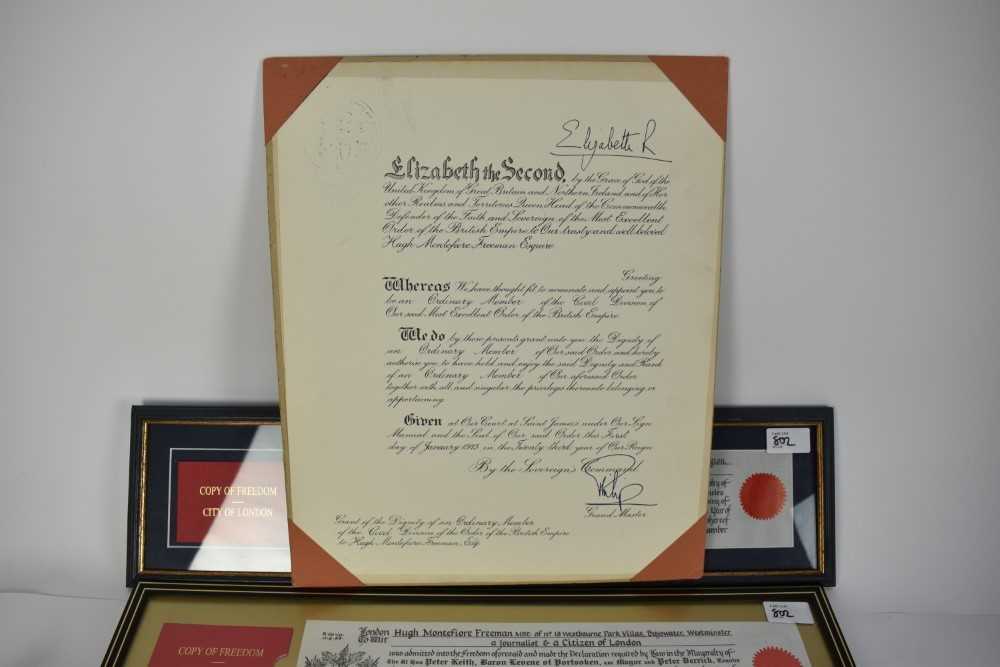 Elizabeth R
Elizabeth the Second, by the Grace of God of the
United Kingdom of Great Britain and Northern Ireland and of Her
other Realms and Territories Queen, Head of the Commonwealth,
Defender of the Faith and Sovereign of the Most Excellent
Order of the British Empire to Our trusty and well beloved
Hugh Montefiore Freeman Esquire
Greeting
Whereas We have thought fit to nominate and appoint you to
be an Ordinary Member of the Civil Division of
Our said Most Excellent Order of the British Empire
We do by these presents grant unto you the Dignity of
an Ordinary Member of Our said Order and hereby
authorise you to have hold and enjoy the said Dignity and Rank
of an Ordinary Member of Our aforesaid Order
together with all and singular the privileges thereunto belonging or
appertaining.
Given at Our Court at Saint James's under Our Sign
Manual and the Seal of Our said Order this First
day of January 1975 in the Twenty third year of Our Reign
By the Sovereign's Command.
Philip
Grand Master
Grant of the Dignity of an Ordinary Member
of the Civil Division of the Order of the British Empire
to Hugh Montefiore Freeman, Esq.
COPY OF FREEDOM
CITY OF LONDON
802
802
COPY OF FREEDOM
London Hugh Montefiore Freeman MBE of Nº 18 Westbourne Park Villas, Bayswater, Westminster
To Wit a Journalist & a Citizen of London
was admitted into the Freedom aforesaid and made the Declaration required by Law in the Mayoralty of
The Rt Hon Peter Keith, Baron Levene of Portsoken, KBE Mayor and Peter Derrick,